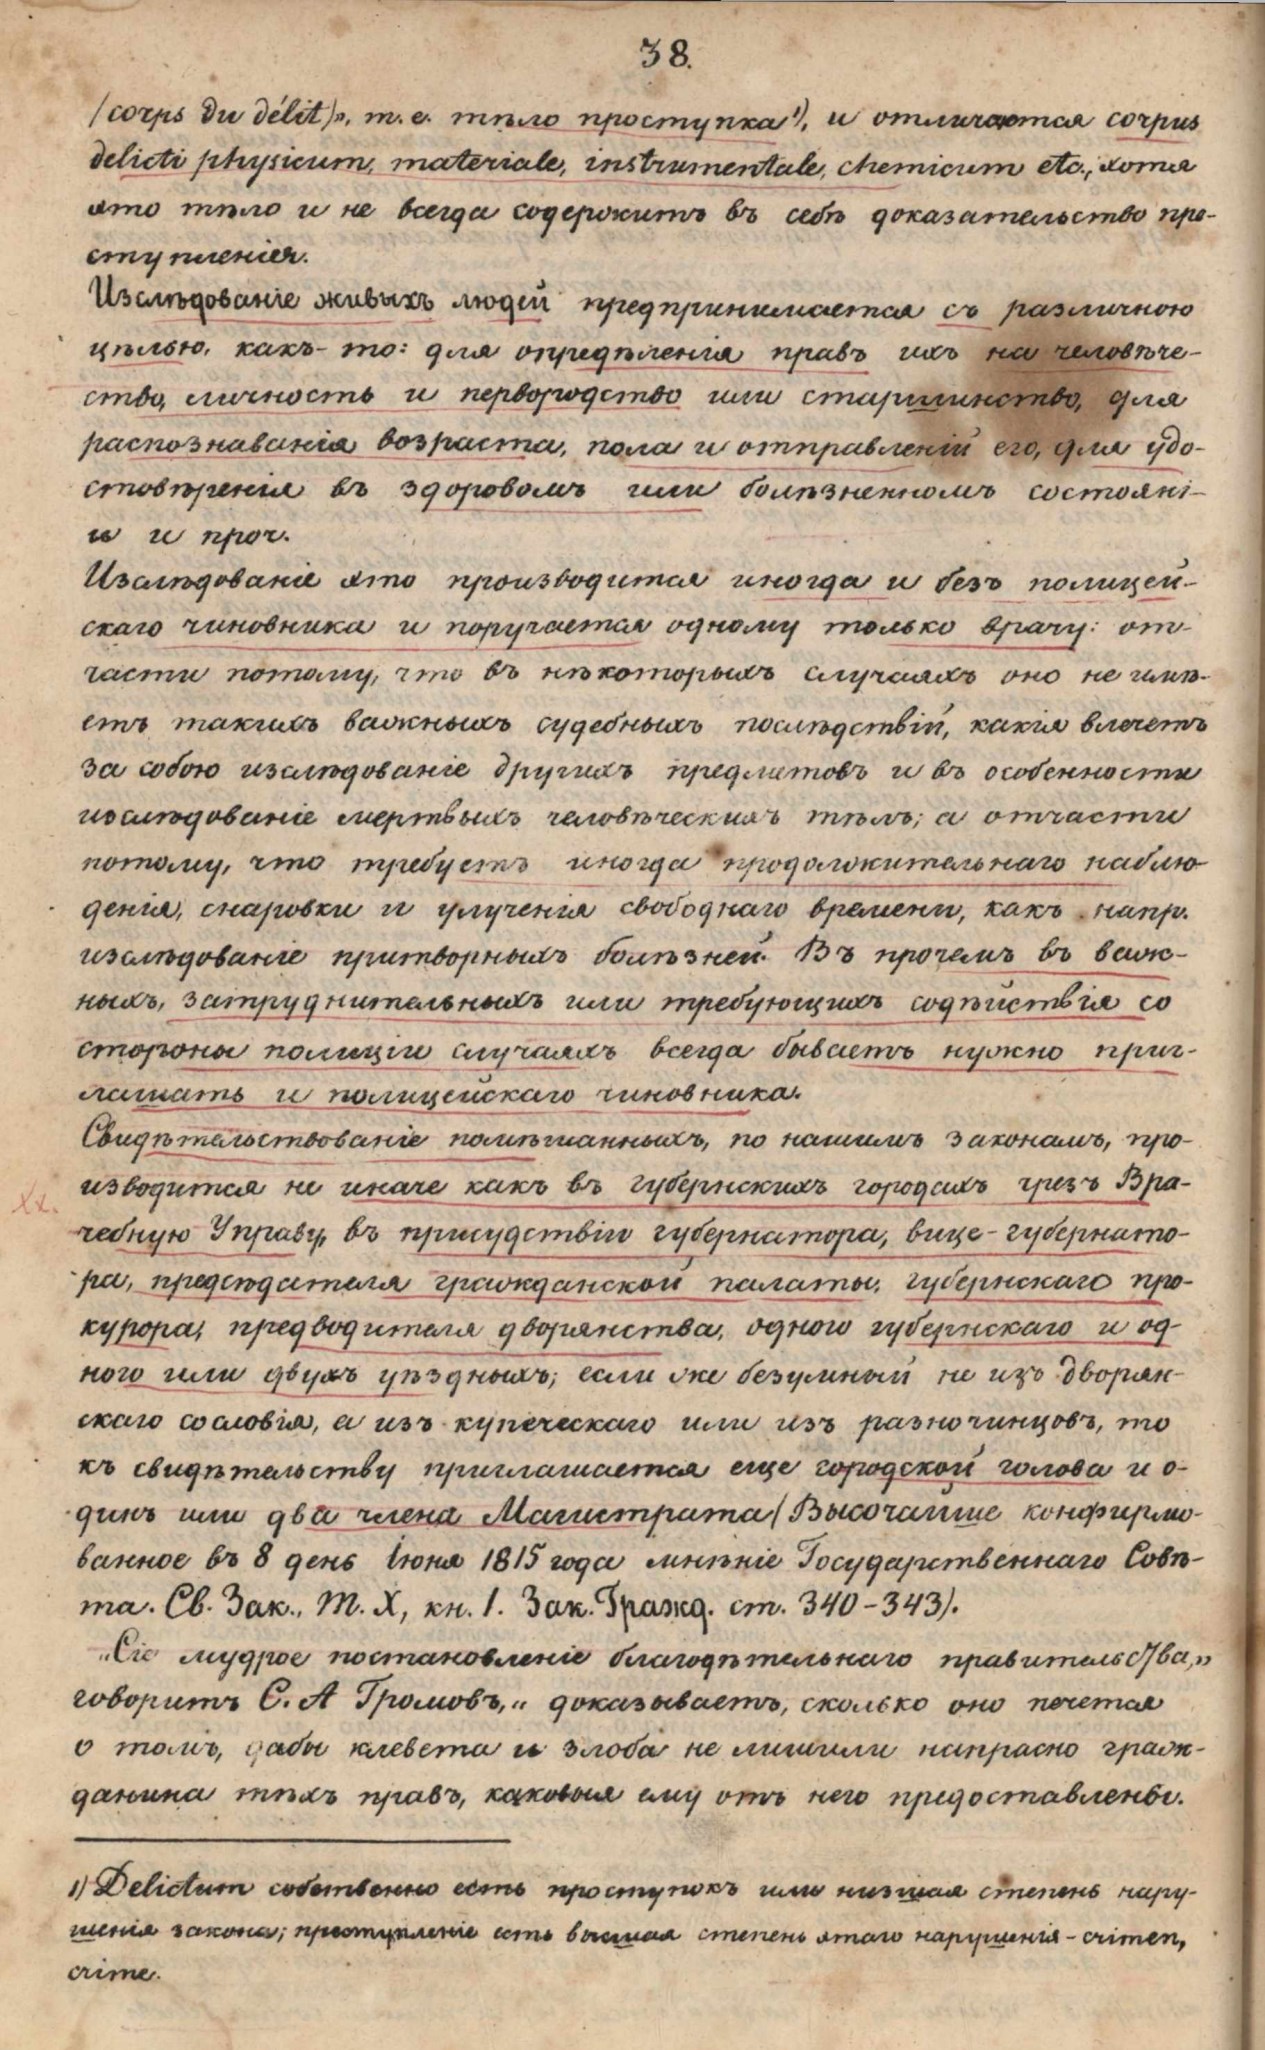 38.
(corps du délit)», т. е. тѣло проступка¹), и отличаются corpus
delicti physicum, materiale, instrumentale, chemicum etc., хотя
это тѣло и не всегда содержитъ въ себѣ доказательство пре-
ступленія.
Изслѣдованіе живыхъ людей предпринимается съ различною
цѣлью, какъ-то: для опредѣленія правъ ихъ на человѣче-
ство, личность и первородство или старшинство, для
распознаванія возраста, пола и отправленій его, для удо-
стовѣренія въ здоровомъ или болѣзненномъ состояні-
и и проч.
Изслѣдованіе это производится иногда и безъ полицей-
скаго чиновника и поручается одному только врачу: от-
части потому, что въ нѣкоторыхъ случаяхъ оно не имѣ-
етъ такихъ важныхъ судебныхъ послѣдствій, какія влечетъ
за собою изслѣдованіе другихъ предметовъ и въ особенности
изслѣдованіе мертвыхъ человѣческихъ тѣлъ; а отчасти
потому, что требуетъ иногда продолжительнаго наблю-
денія, снаровки и улученія свободнаго времени, какъ напр.
изслѣдованіе притворныхъ болѣзней. Въ прочемъ въ важ-
ныхъ, затруднительныхъ или требующихъ содѣйствія со
стороны полиціи случаяхъ всегда бываетъ нужно приг-
лашать и полицейскаго чиновника.
Свидѣтельствованіе помѣшанныхъ, по нашимъ законамъ, про-
изводится не иначе какъ въ губернскихъ городахъ чрезъ Вра-
чебную Управу, въ присудствіи губернатора, вице-губернато-
ра, предсѣдателя гражданской палаты, губернскаго про-
курора, предводителя дворянства, одного губернскаго и од-
ного или двухъ уѣздныхъ; если же безумный не изъ дворян-
скаго сословія, а изъ купеческаго или изъ разночинцовъ, то
къ свидѣтельству приглашается еще городской голова и о-
динъ или два члена Магистрата (Высочайше конфирмо-
ванное въ 8 день Іюня 1815 года мнѣніе Государственнаго Совѣ-
та. Св. Зак., Т. X, кн. 1. Зак. Гражд. ст. 340-343).
„Сіе мудрое постановленіе благодѣтельнаго правительства,"
говоритъ С. А Громовъ, „доказываетъ, сколько оно печется
о томъ, дабы клевета и злоба не лишили напрасно граж-
данина тѣхъ правъ, каковыя ему отъ него предоставлены.
1) Delictum собственно есть проступокъ или низшая степень нару-
шенія закона; преступленіе есть высшая степень этаго нарушенія - crimen,
crime.